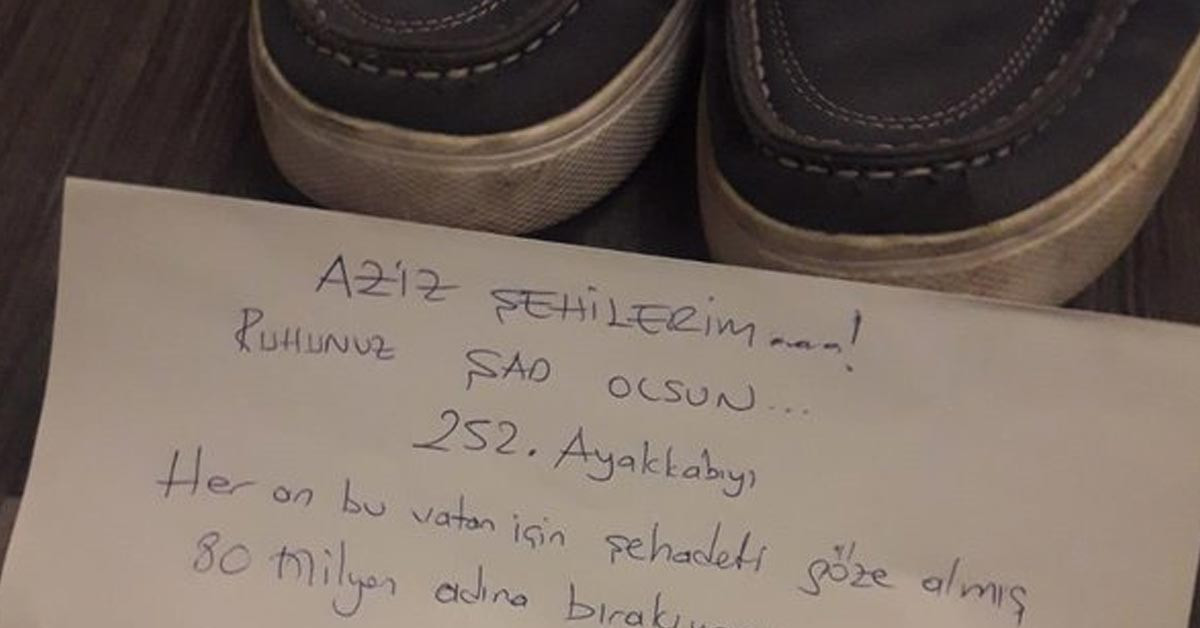 AZİZ ŞEHİLERİM....!
RUHUNUZ ŞAD OLSUN...
252. Ayakkabıyı
Her an bu vatan için şehadeti göze almış
80 milyon adına